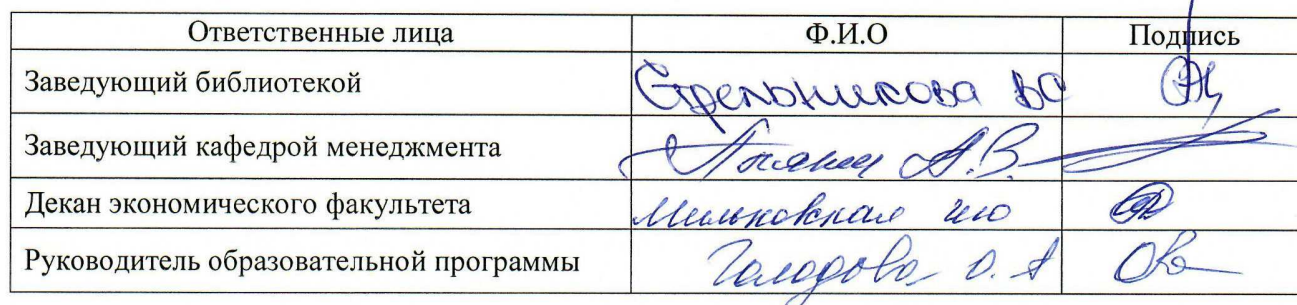 Ответственные лица Ф.И.О Подпись
Заведующий библиотекой Стрельникова ВС
Заведующий кафедрой менеджмента А.В.
Декан экономического факультета Мильковская ию
Руководитель образовательной программы Голодова О.А